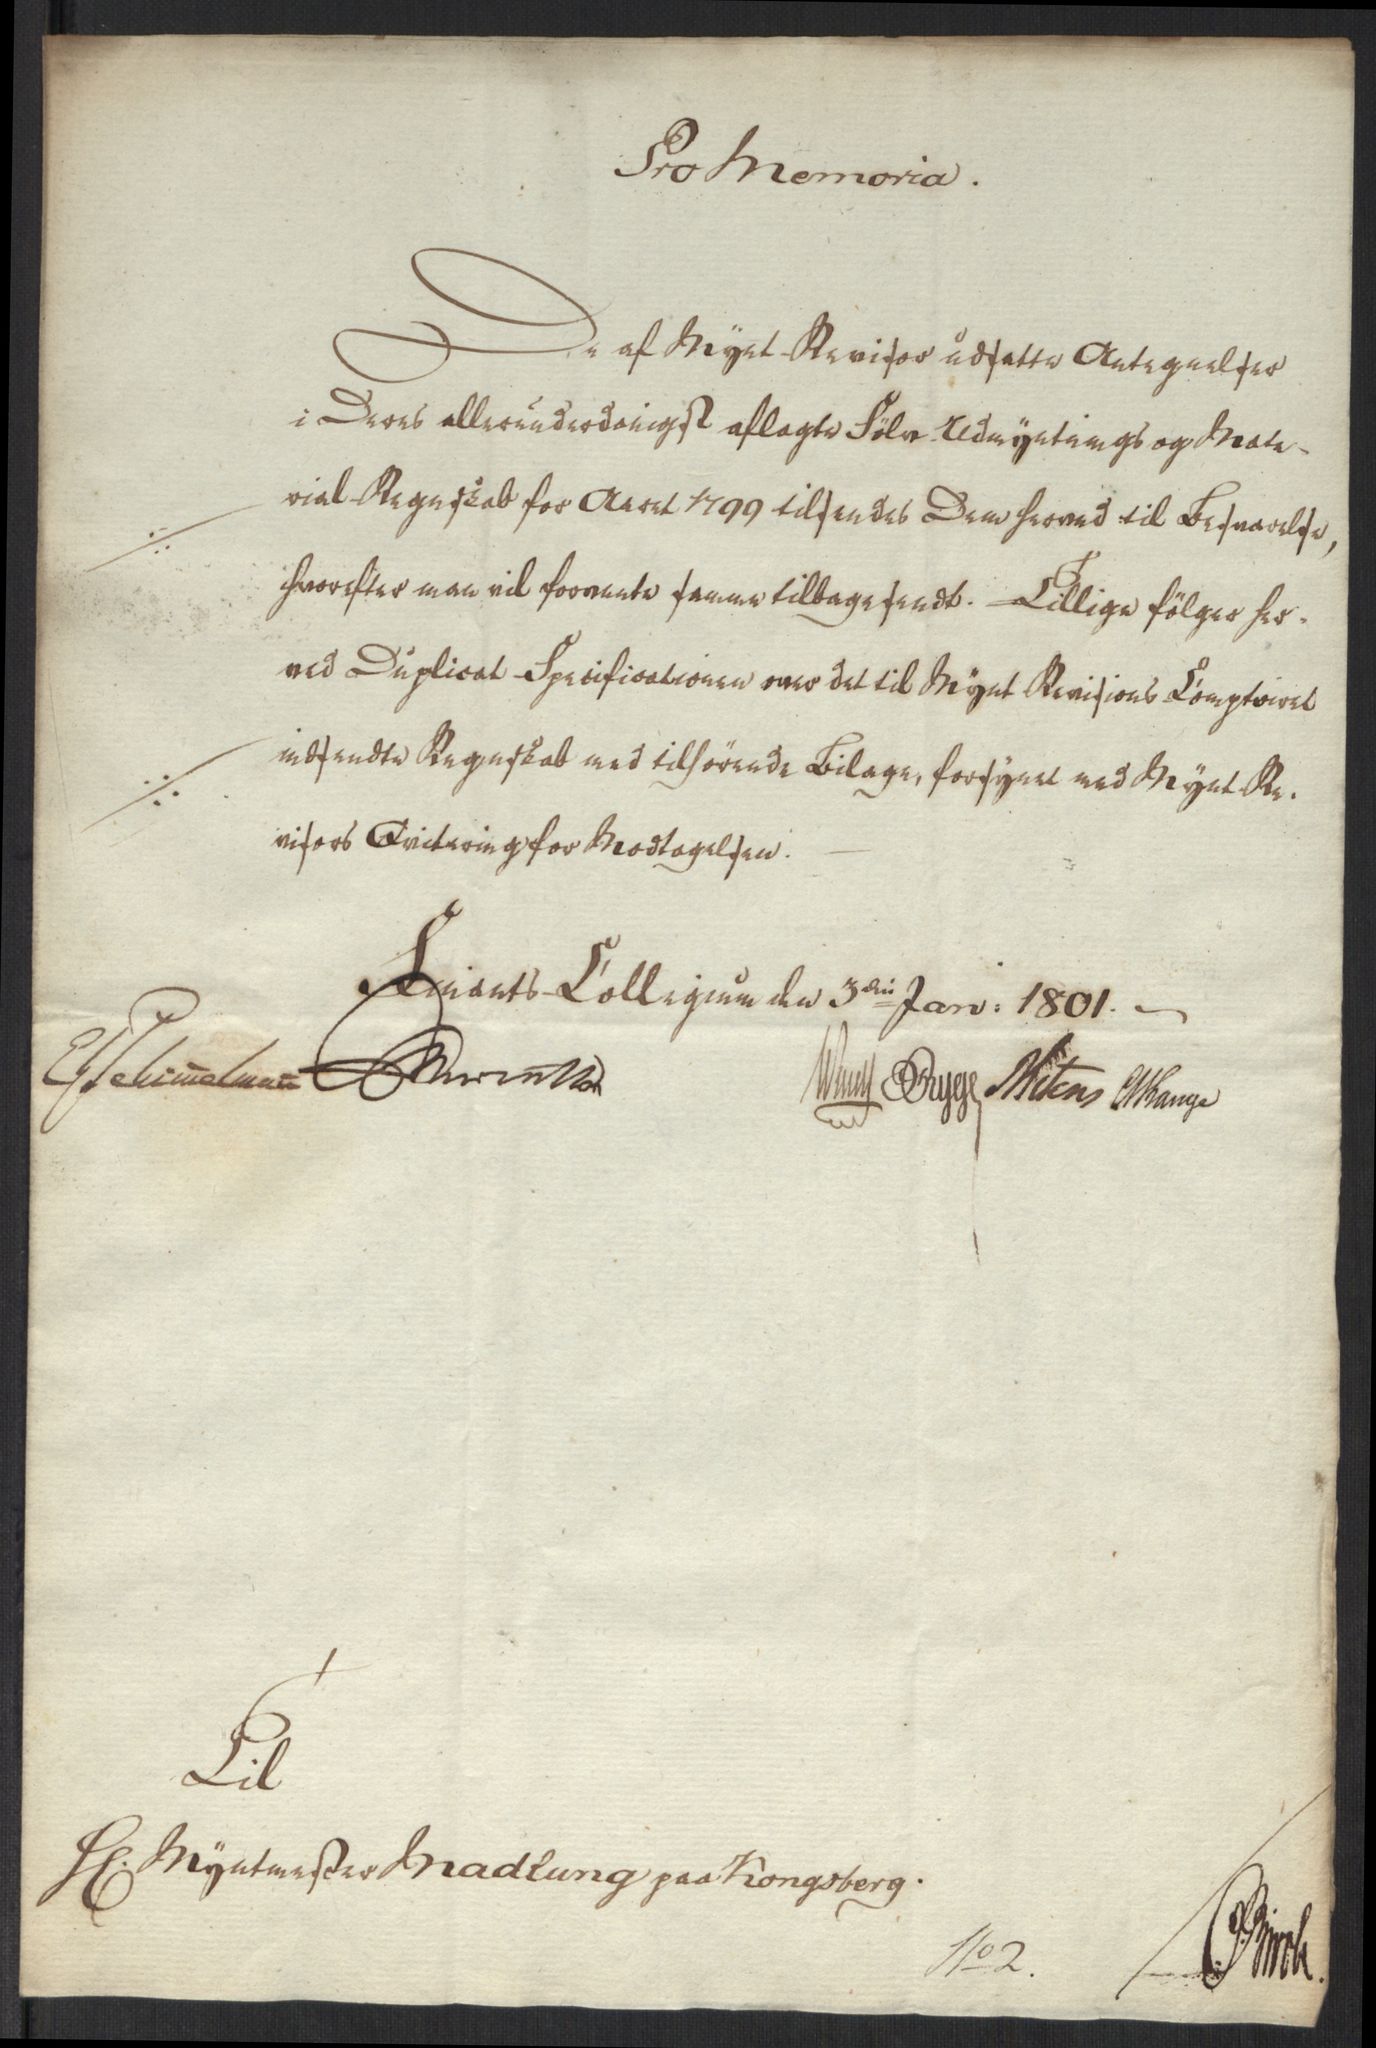 Pro Memoria.
De af Mÿnt-Revisor udsatte Antegnelser
i Deres allerunderdanigst aflagte Sölv-Udmÿntnings og Mate-
rial-Regnskab for Aaret 1799 tilsendes Dem herved til Besvarelse,
hvorefter man vil forvente samme tilbagesendt. Tillige fölger her-
ved Duplicat-Specificationen over det til Mÿnt Revisions Comptoiret
indsendte Regnskab med tilhörende Bilage, forsÿnet med Mÿnt Re-
visors Qvitering for Modtagelsen.
Finants-Collegium den 3die Janv: 1801.
ESchimmelmann Brygge CWLange
Til
Hr. Mÿntmester Madelung paa Kongsberg.
No 2.